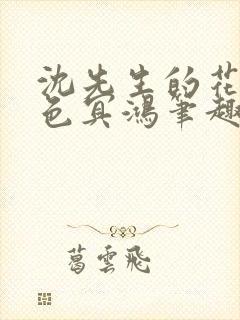 沈先生的花
色冥鴻筆趣
葛雲飛